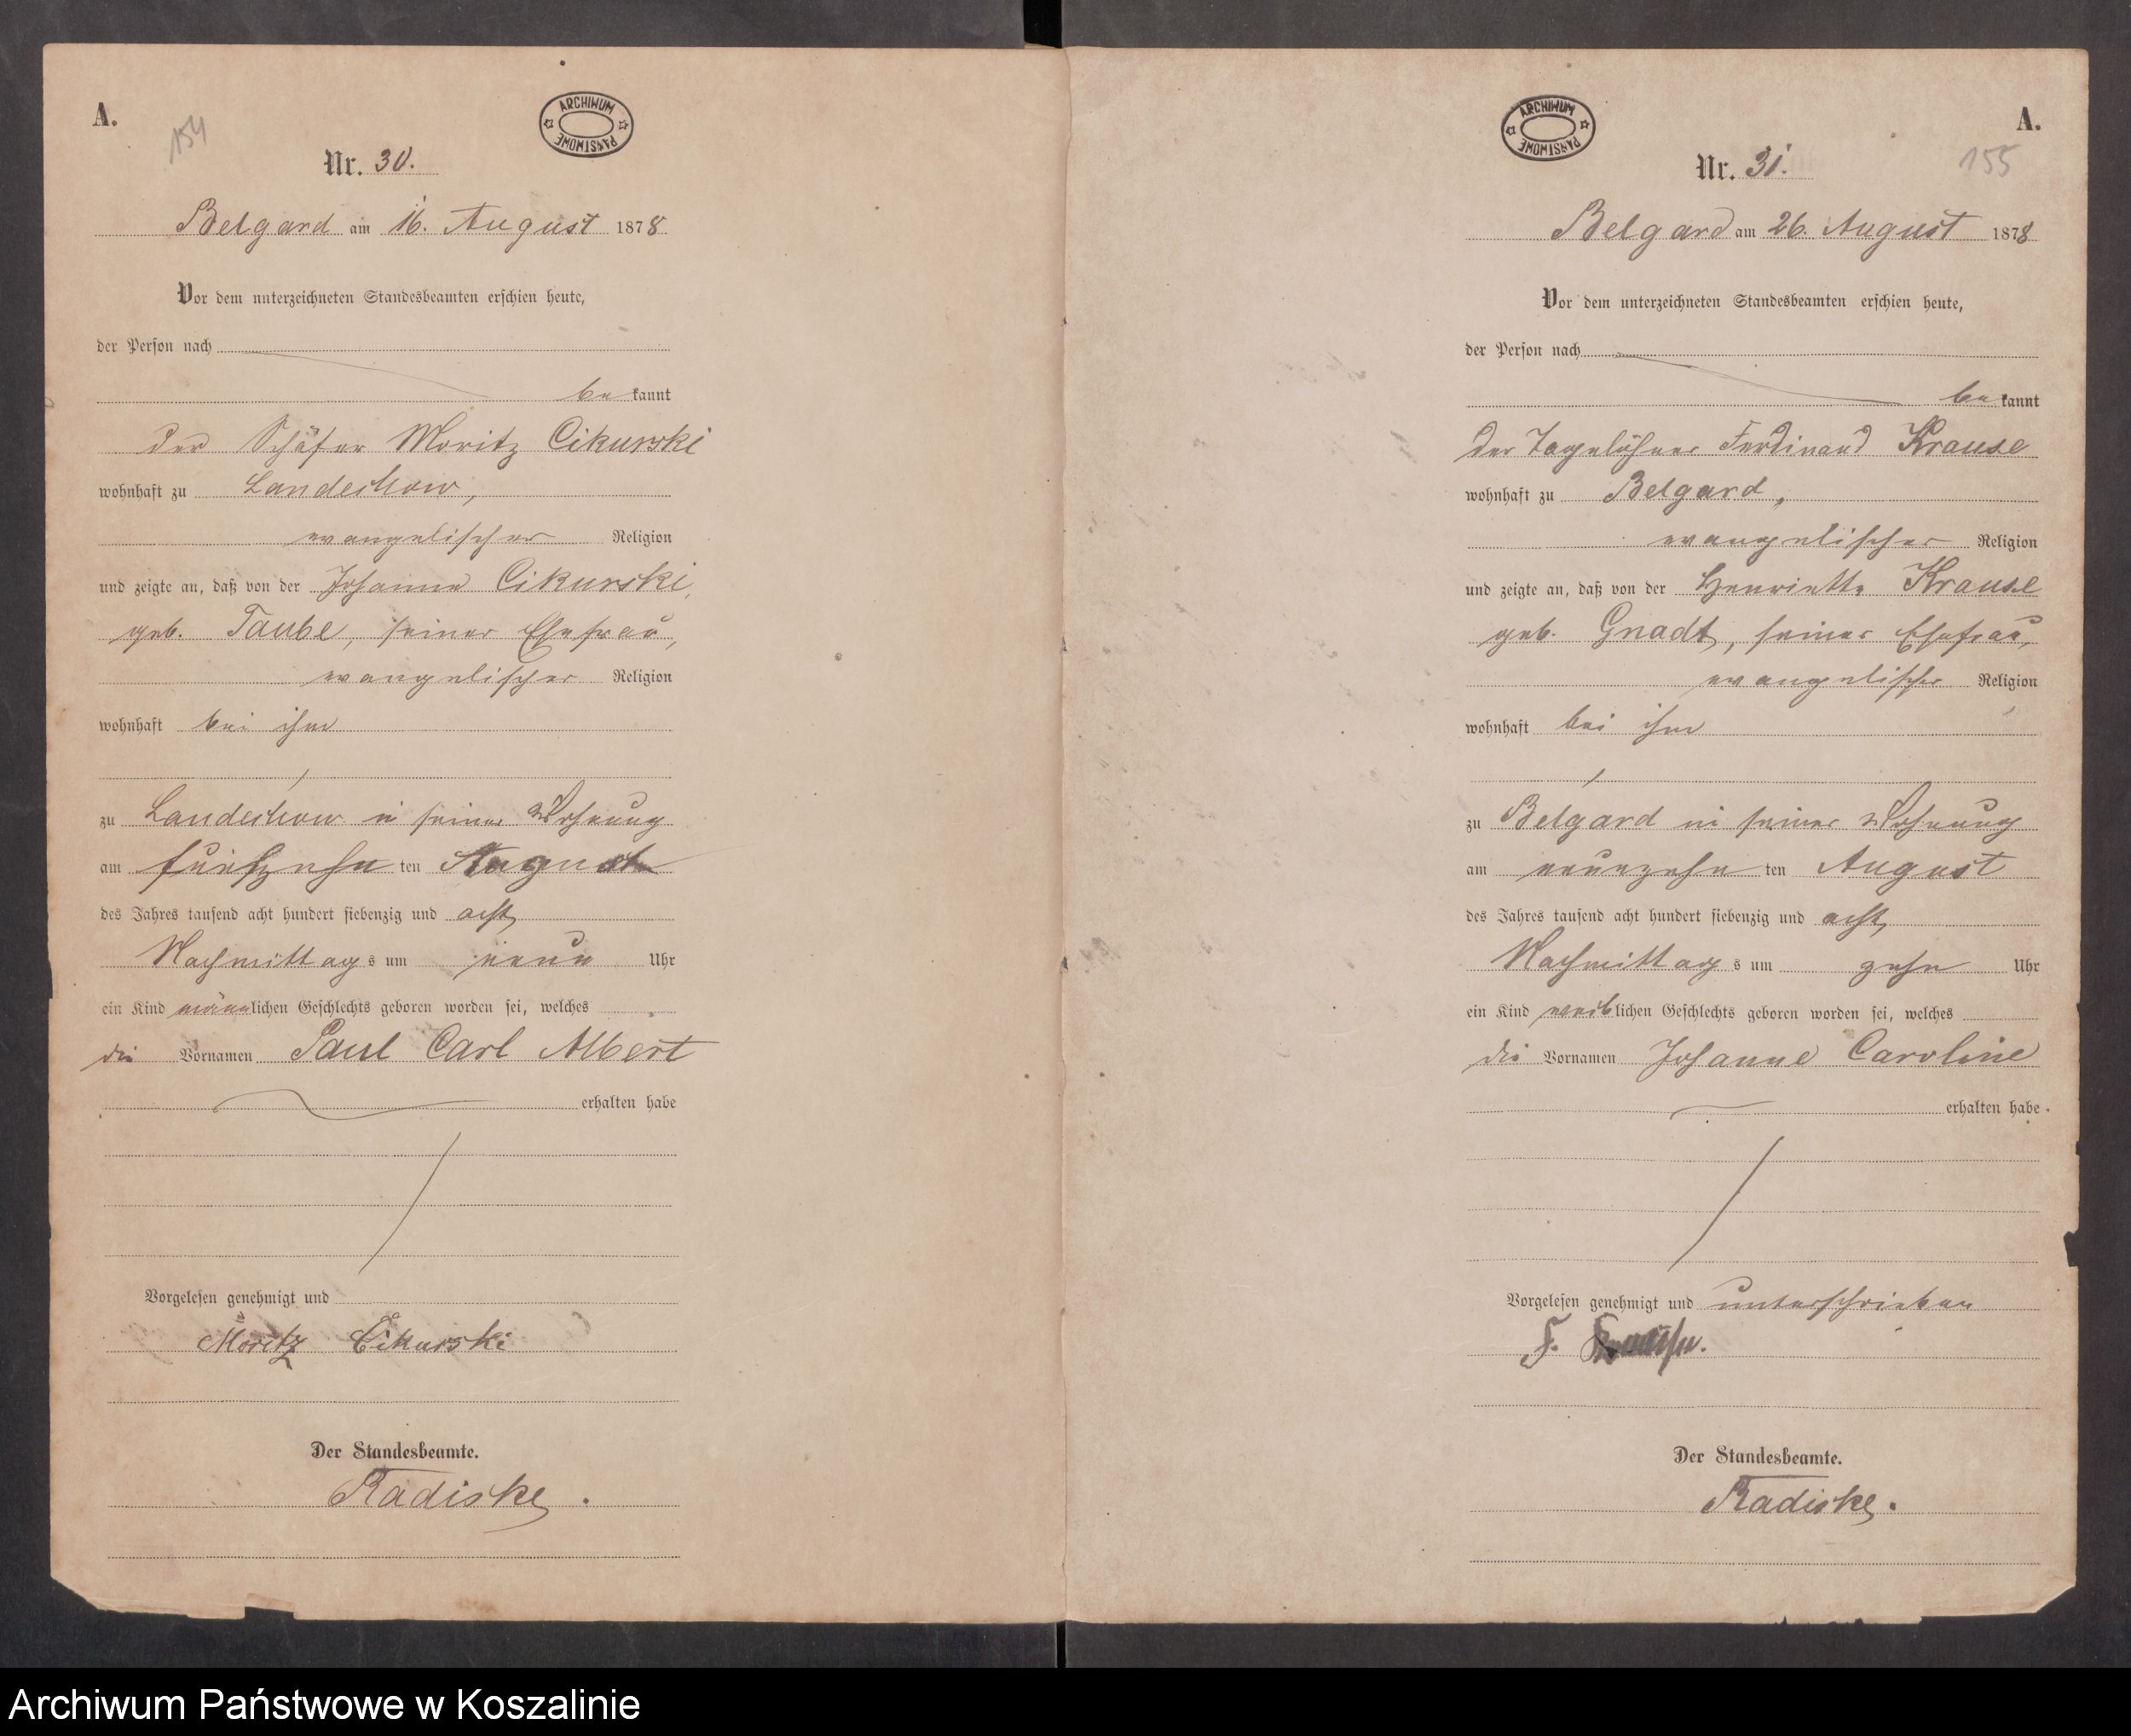 A.
154
ARCHIWUM PAŃSTWOWE
Nr. 30.
Belgard am 16. August 1878
Vor dem unterzeichneten Standesbeamten erschien heute,
der Person nach
be kannt
der Schäfer Moritz Cikurski
wohnhaft zu Landechow,
evangelischer Religion
und zeigte an, daß von der Johanne Cikurski,
geb. Taube, seiner Ehefrau,
evangelischer Religion
wohnhaft bei ihm
zu Landechow in seiner Wohnung
am fünfzehn ten August
des Jahres tausend acht hundert siebenzig und acht
Nachmittags um neun Uhr
ein Kind männlichen Geschlechts geboren worden sei, welches
die Vornamen Paul Carl Albert
erhalten habe
Vorgelesen genehmigt und
Moritz Cikurski
Der Standesbeamte.
Radiske.
A.
155
ARCHIWUM PAŃSTWOWE
Nr. 31.
Belgard am 26. August 1878
Vor dem unterzeichneten Standesbeamten erschien heute,
der Person nach
be kannt
der Tagelöhner Ferdinand Krause
wohnhaft zu Belgard,
evangelischer Religion
und zeigte an, daß von der Henriette Krause
geb. Gnadt, seiner Ehefrau,
evangelischer Religion
wohnhaft bei ihm
zu Belgard in seiner Wohnung
am neunzehn ten August
des Jahres tausend acht hundert siebenzig und acht
Nachmittags um zehn Uhr
ein Kind weiblichen Geschlechts geboren worden sei, welches
die Vornamen Johanne Caroline
erhalten habe.
Vorgelesen genehmigt und unterschrieben
F. Krause.
Der Standesbeamte.
Radiske.
Archiwum Państwowe w Koszalinie